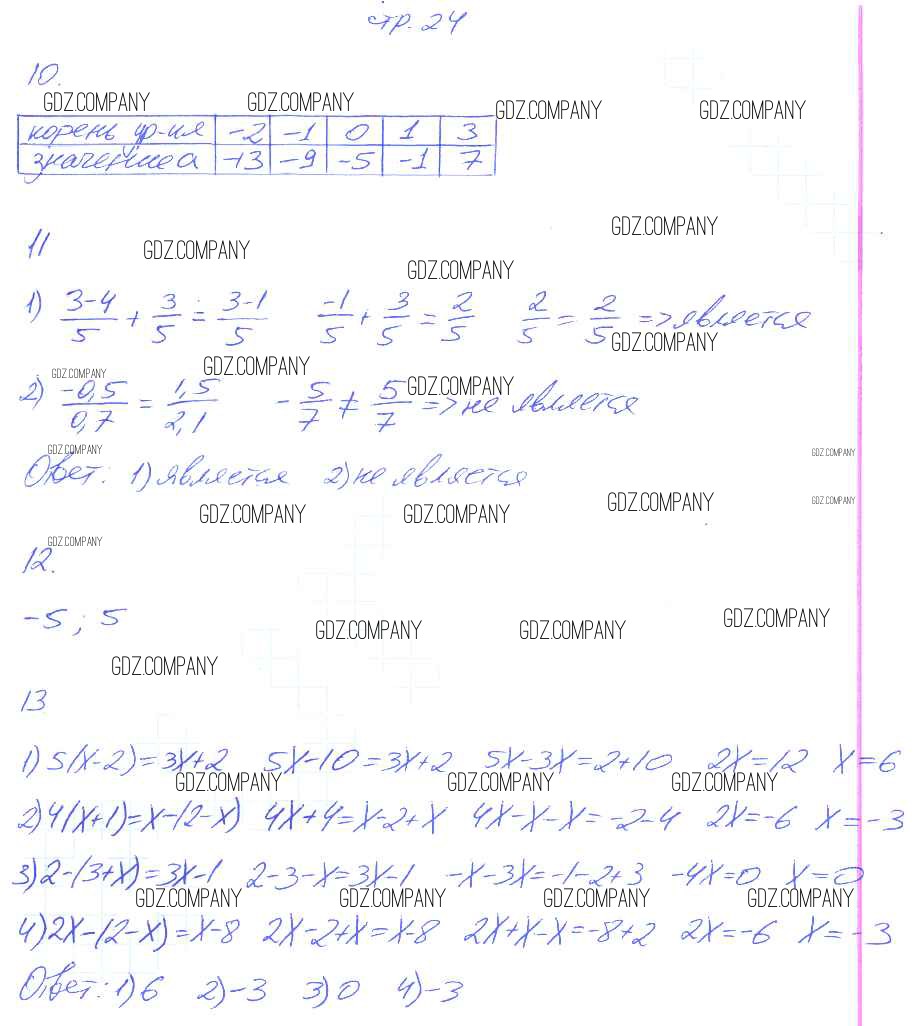 стр. 24
10.
GDZ.COMPANY GDZ.COMPANY GDZ.COMPANY GDZ.COMPANY
корень ур-ия -2 -1 0 1 3
значение a -13 -9 -5 -1 7
GDZ.COMPANY
11 GDZ.COMPANY
GDZ.COMPANY
1) 3-4/5 + 3/5 = 3-1/5 -1/5 + 3/5 = 2/5 2/5 = 2/5 => является
GDZ.COMPANY
GDZ.COMPANY GDZ.COMPANY GDZ.COMPANY
2) -0,5/0,7 = 1,5/2,1 -5/7 ≠ 5/7 => не является
GDZ.COMPANY GDZ.COMPANY
Ответ: 1) является 2) не является
GDZ.COMPANY GDZ.COMPANY GDZ.COMPANY GDZ.COMPANY
GDZ.COMPANY
12.
-5 ; 5
GDZ.COMPANY GDZ.COMPANY GDZ.COMPANY
GDZ.COMPANY
13
1) 5(x-2)=3x+2 5x-10=3x+2 5x-3x=2+10 2x=12 x=6
GDZ.COMPANY GDZ.COMPANY GDZ.COMPANY
2) 4(x+1)=x-(2-x) 4x+4=x-2+x 4x-x-x=-2-4 2x=-6 x=-3
3) 2-(3+x)=3x-1 2-3-x=3x-1 -x-3x=-1-2+3 -4x=0 x=0
GDZ.COMPANY GDZ.COMPANY GDZ.COMPANY GDZ.COMPANY
4) 2x-(2-x)=x-8 2x-2+x=x-8 2x+x-x=-8+2 2x=-6 x=-3
Ответ: 1) 6 2) -3 3) 0 4) -3